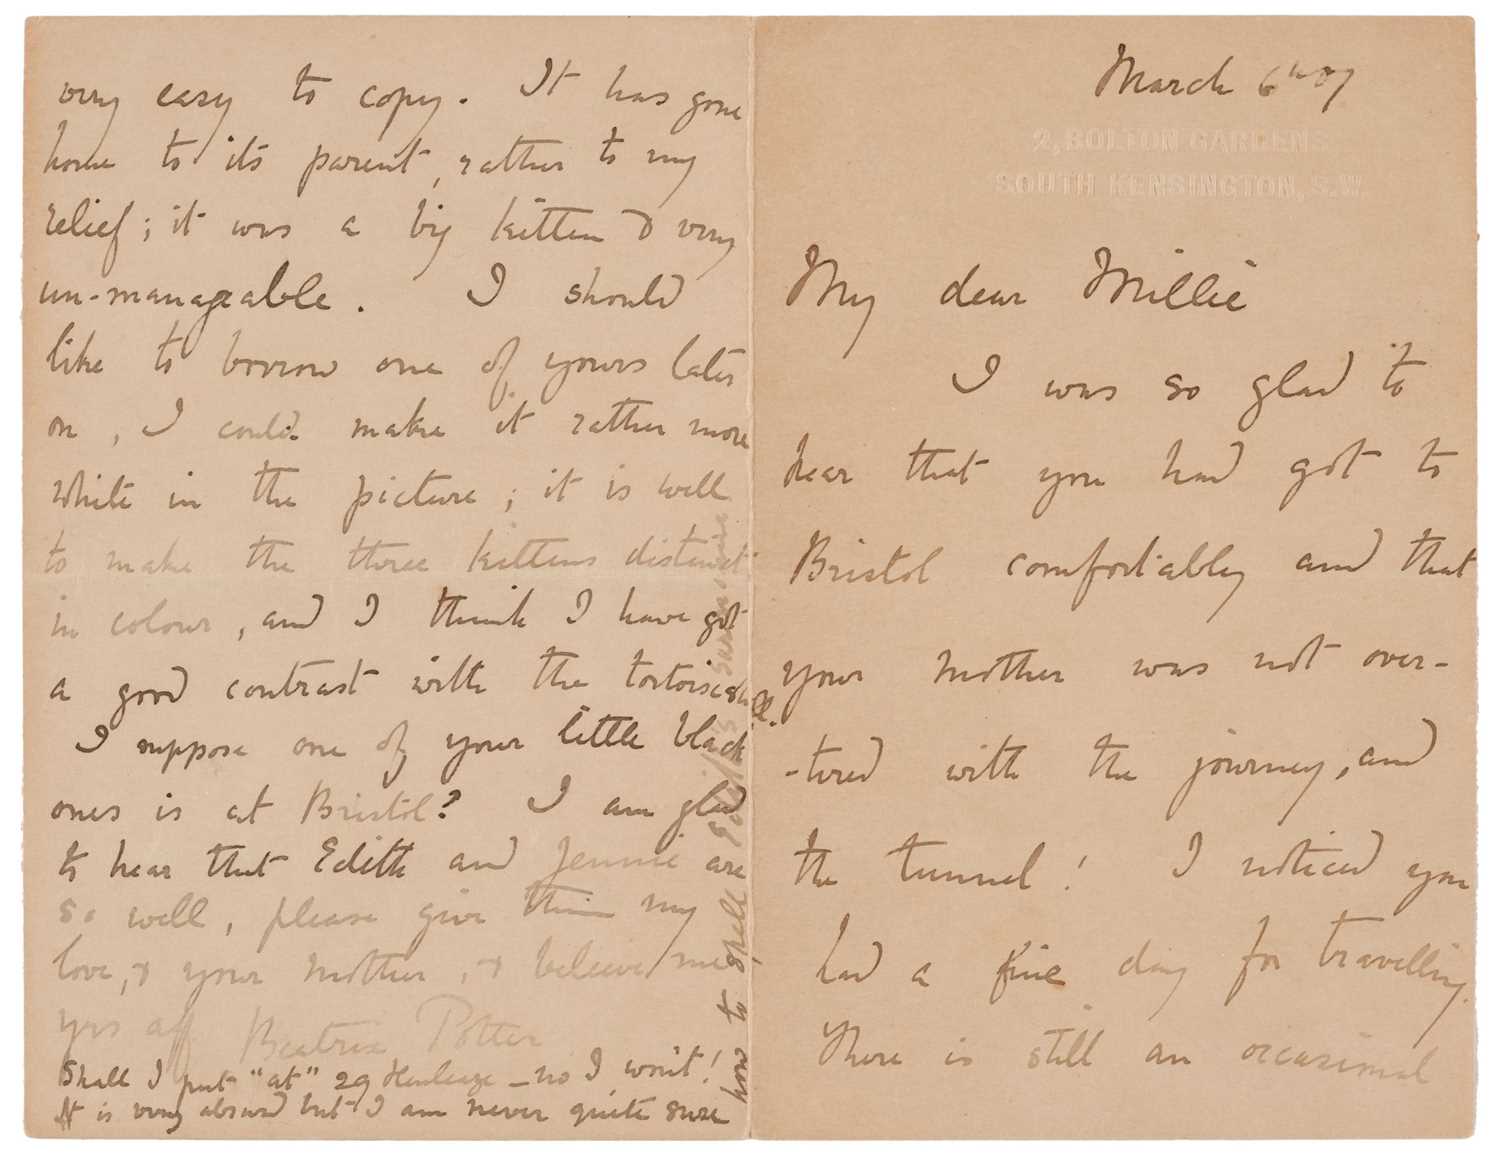 March 6th 07
2, BOLTON GARDENS,
SOUTH KENSINGTON, S.W.
My dear Millie
I was so glad to
hear that you had got to
Bristol comfortably and that
your mother was not over-
-tired with the journey, and
the tunnel! I noticed you
had a fine day for travelling.
There is still an occasional
very easy to copy. It has gone
home to its parent, rather to my
relief; it was a big kitten & very
un-manageable. I should
like to borrow one of yours later
on, I could make it rather more
white in the picture; it is well
to make the three kittens distinct
in colour, and I think I have got
a good contrast with the tortoiseshell.
I suppose one of your little black
ones is at Bristol? I am glad
to hear that Edith and Jennie are
so well, please give them my
love, & your mother, & believe me
yrs aff Beatrix Potter
Shall I put "at" 29 Henleaze – no I won't!
It is very absurd but I am never quite sure
how to spell